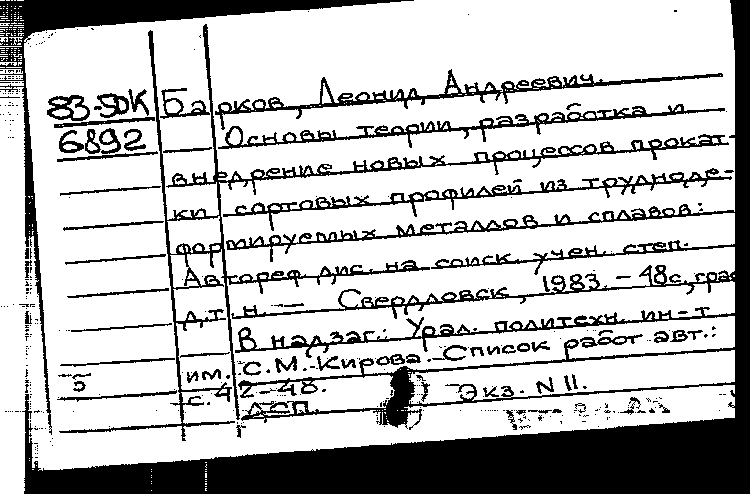 83-5ДК Барков, Леонид Андреевич.
6892 Основы теории, разработка и
внедрение новых процессов прокат-
ки сортовых профилей из трудноде-
формируемых металлов и сплавов:
Автореф. дис. на соиск. учен. степ.
д.т.н. — Свердловск, 1983. - 48с, граф
В надзаг.: Урал. политехн. ин-т
им. С.М. Кирова. Список работ авт.:
с. 42-48.
ДСП. Экз. N 11.